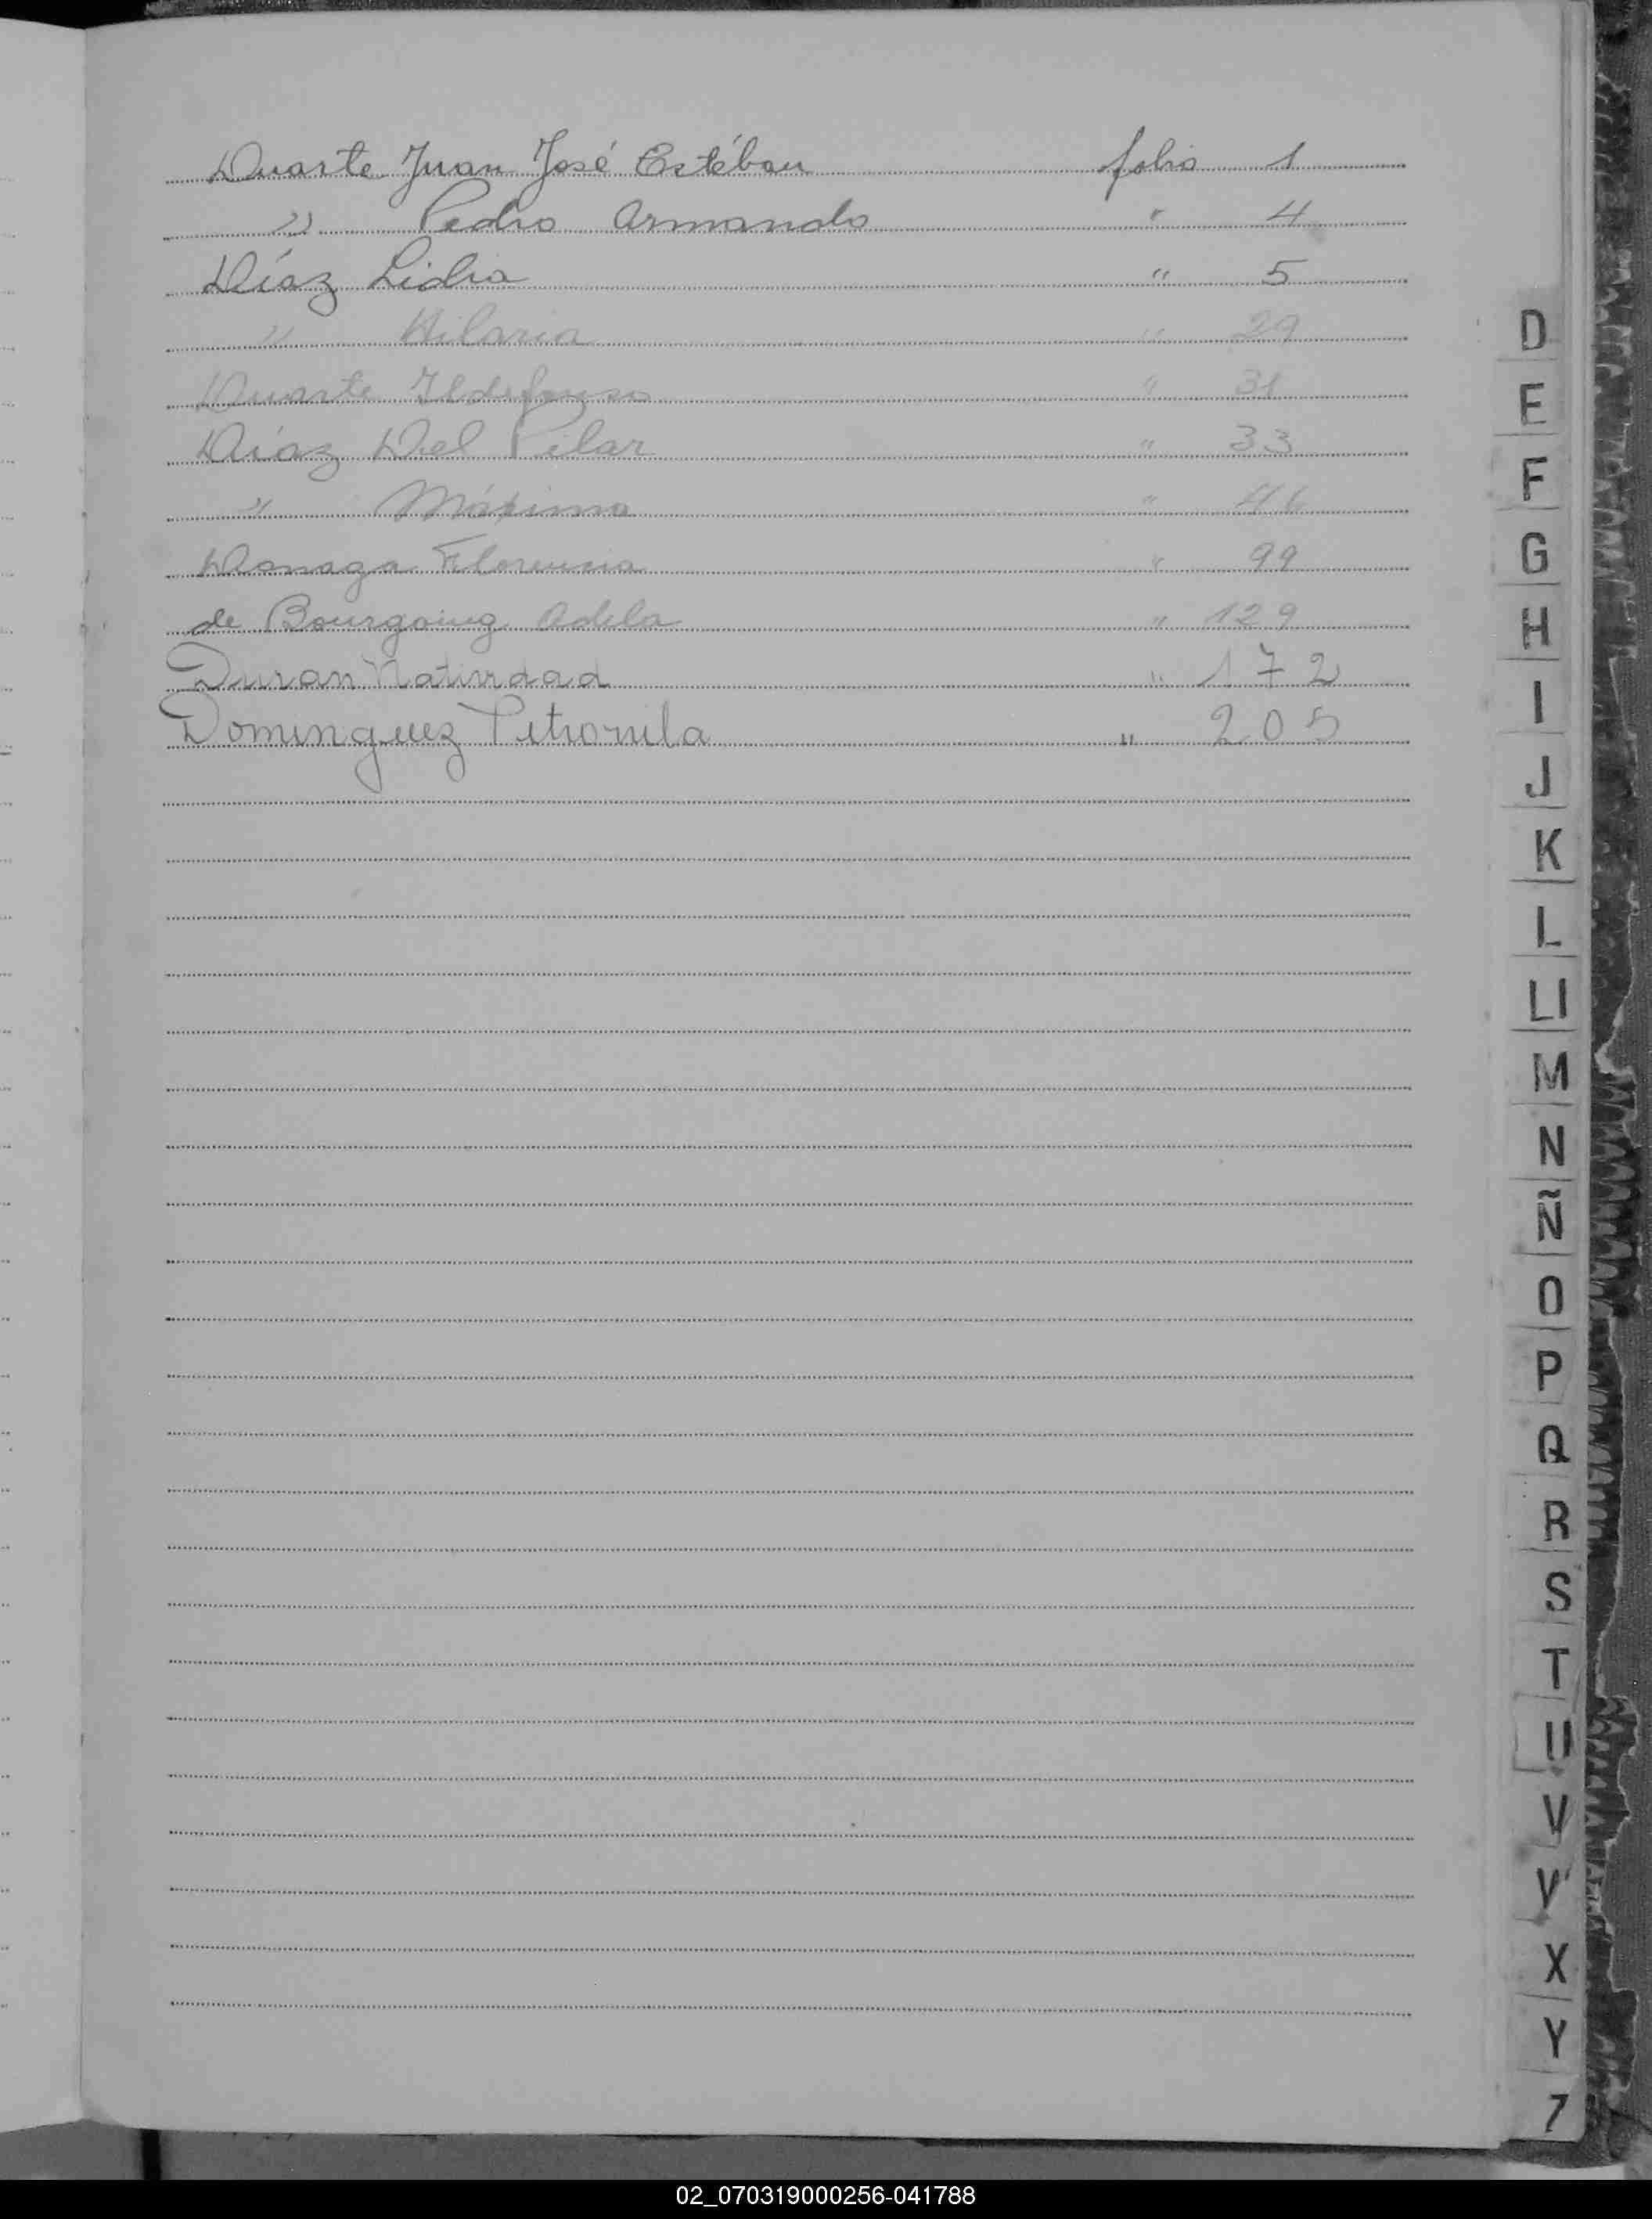 Duarte Juan José Estéban folio 1
" Pedro Armando " 4
Díaz Lidia " 5
" Hilaria " 29
Duarte Ildefonso " 31
Díaz Del Pilar " 33
" Máxima "
Donaga Florencia " 99
de Bourgoing Adela " 129
Duran Natividad " 172
Dominguez Petronila " 205
D
E
F
G
H
I
J
K
L
Ll
M
N
Ñ
O
P
Q
R
S
T
U
V
X
Y
Z
02_070319000256-041788